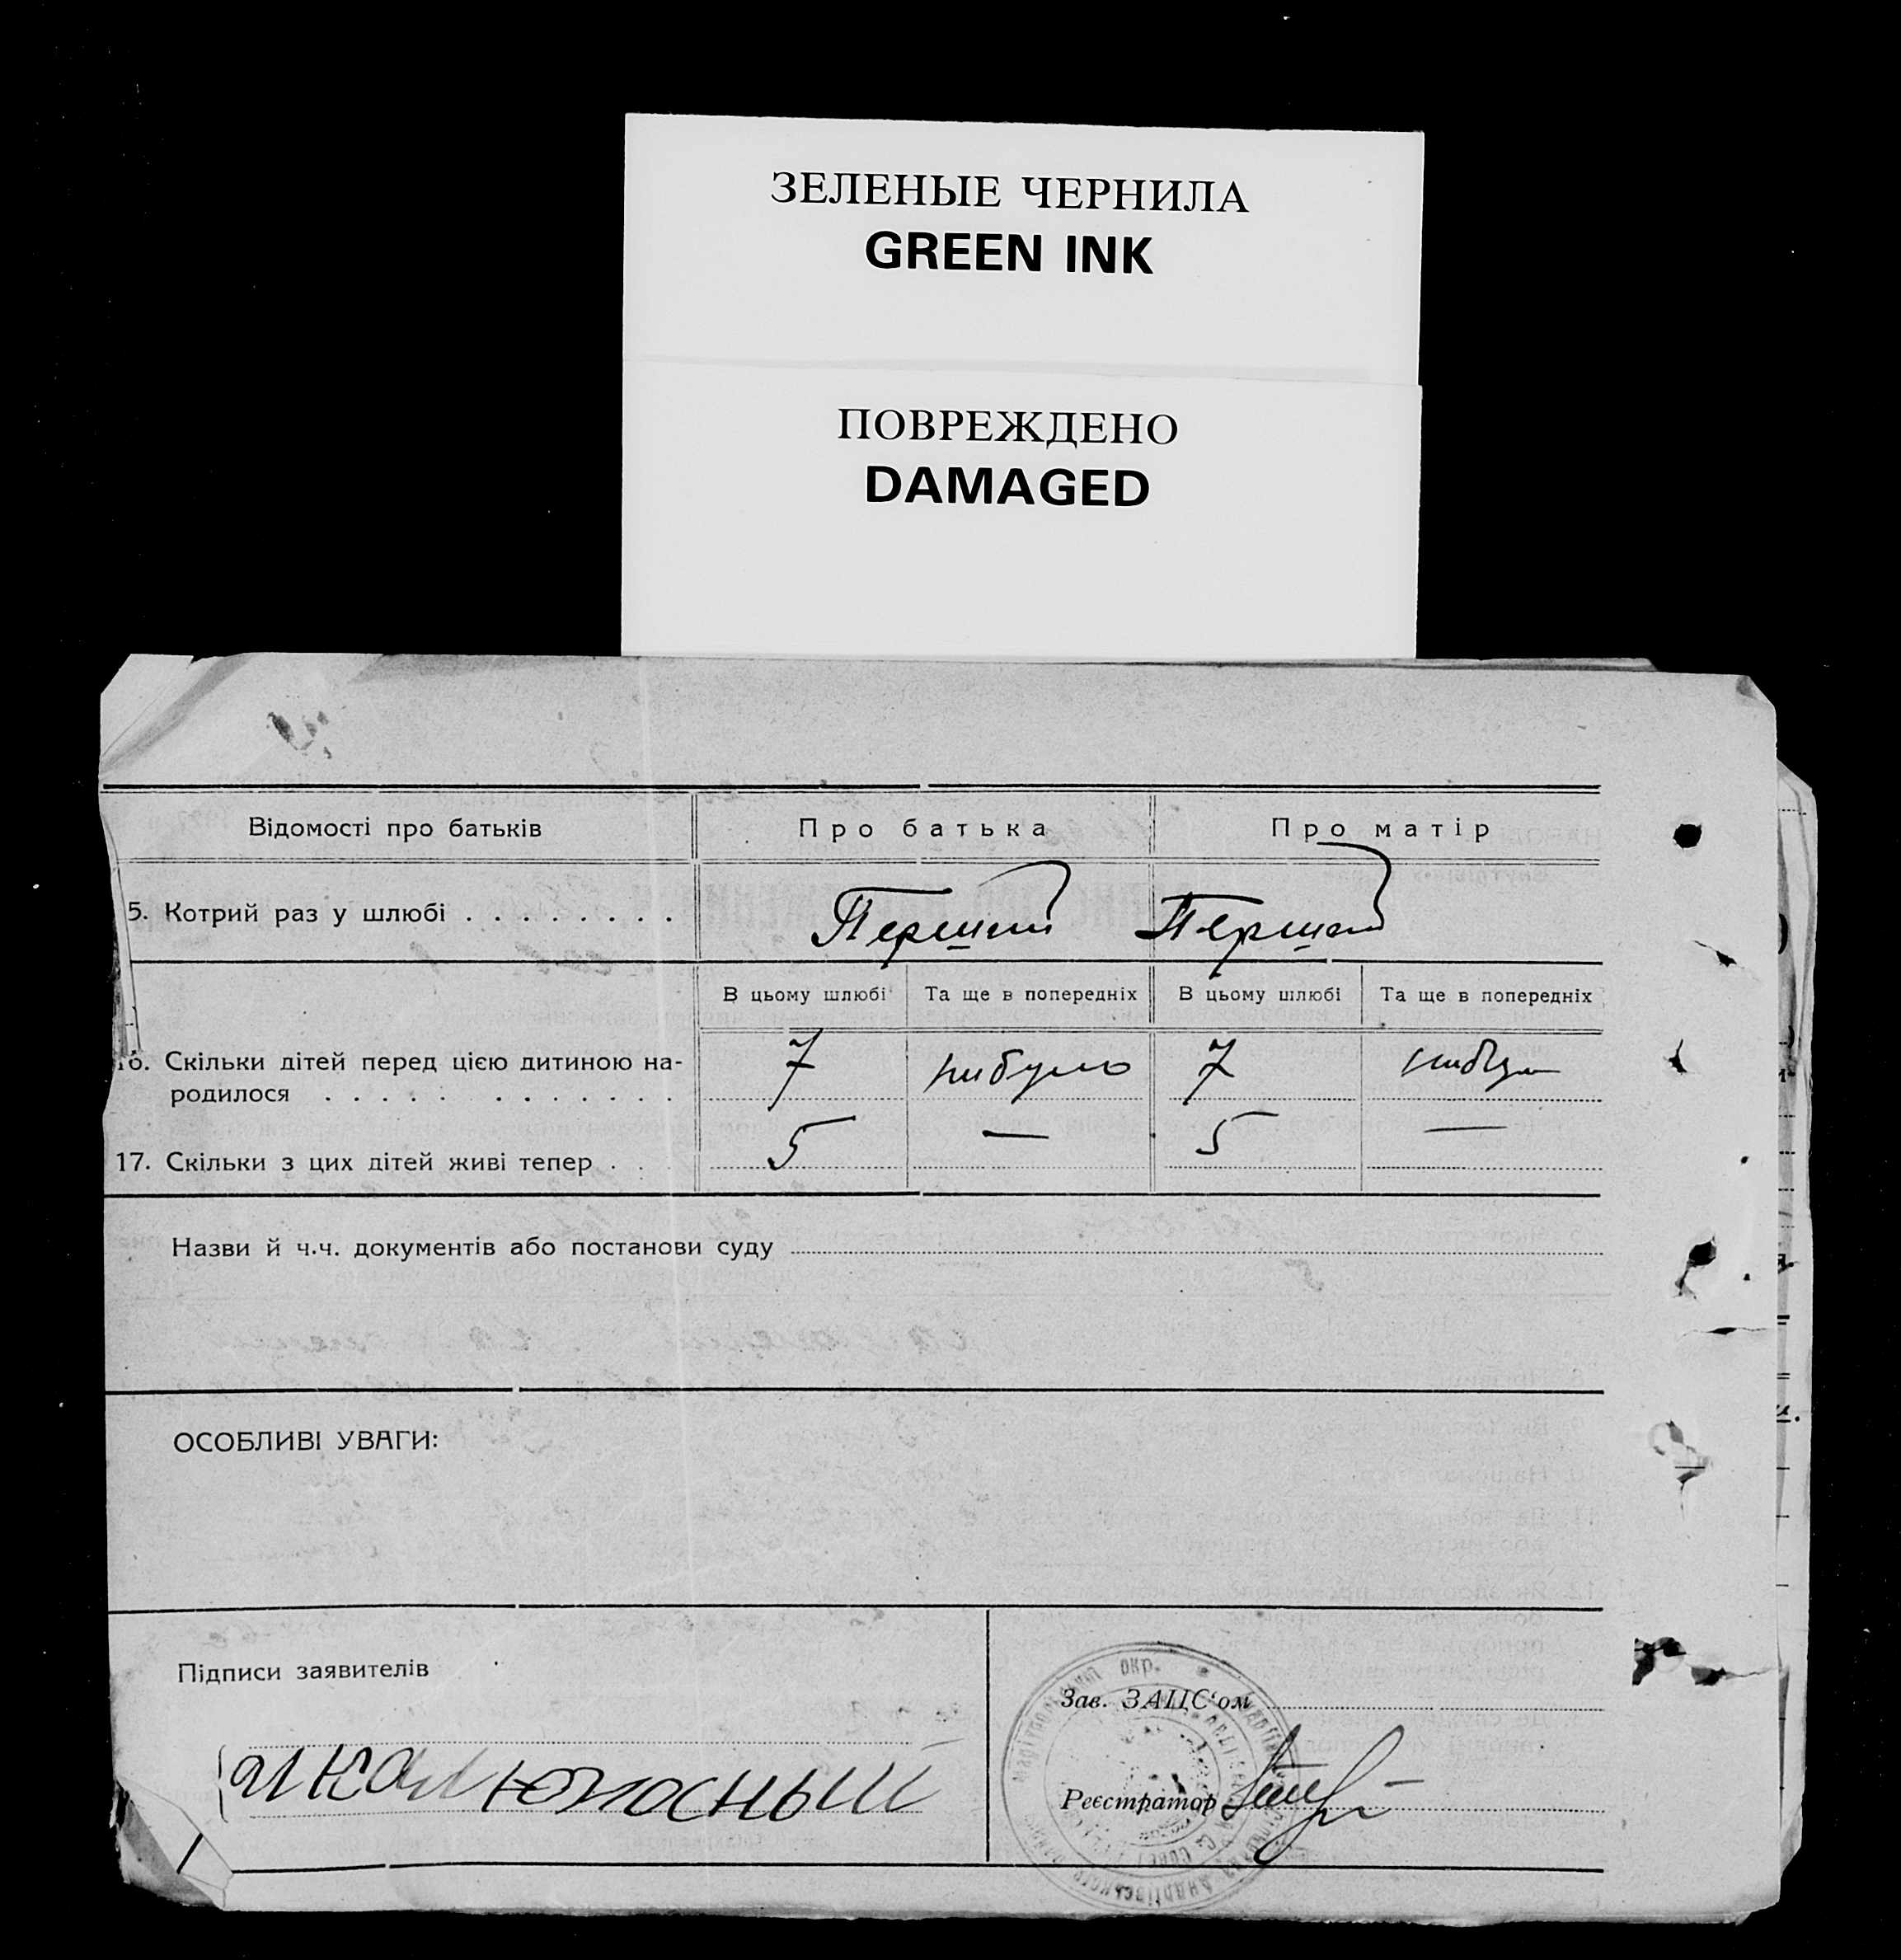 ЗЕЛЕНЫЕ ЧЕРНИЛА
GREEN INK
ПОВРЕЖДЕНО
DAMAGED
Відомості про батьків Про батька Про матір
5. Котрий раз у шлюбі . . . . . . . . Перший Перший
В цьому шлюбі Та ще в попередніх В цьому шлюбі Та ще в попередніх
16. Скільки дітей перед цією дитиною на- 7 нибуло 7
родилося . . . . . . . . . . . .
17. Скільки з цих дітей живі тепер . . . 5 — 5 —
Назви й ч.ч. документів або постанови суду
ОСОБЛИВІ УВАГИ:
Підписи заявителів
Зав. ЗАЦС'ом
Реєстратор
окр.